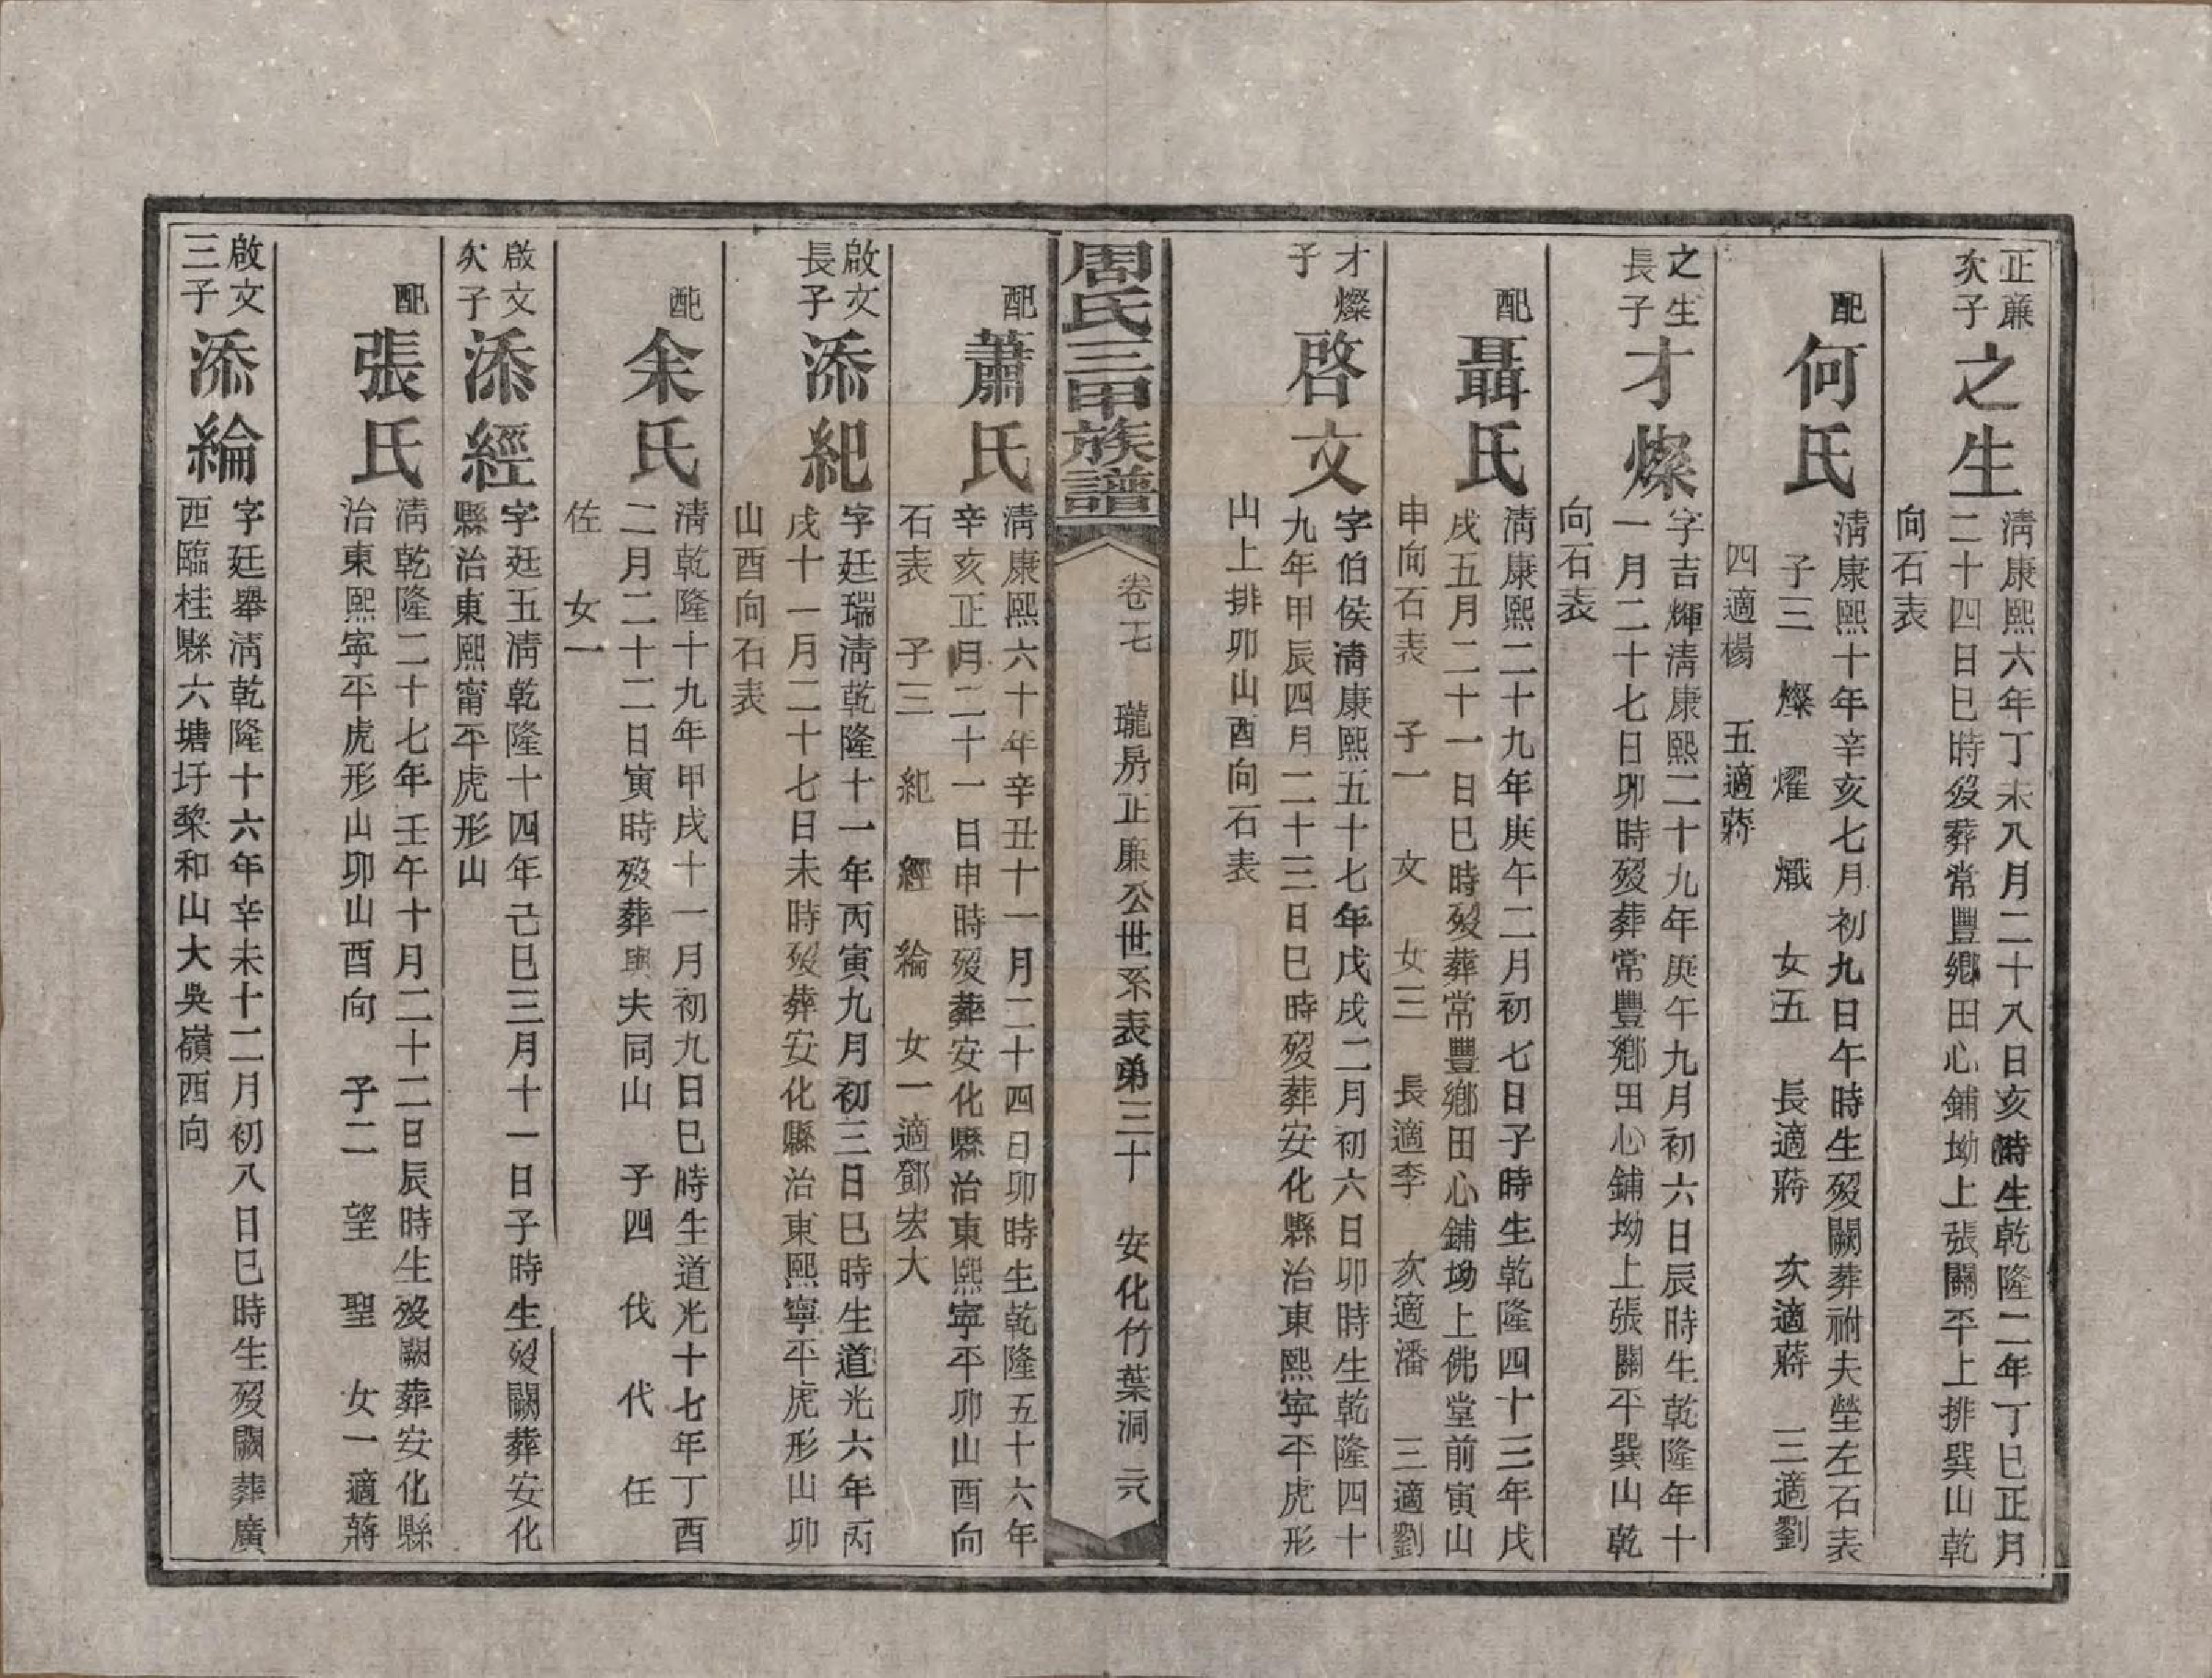 正廉
次子
之生
清康熙六年丁未八月二十八日亥時生乾隆二年丁巳正月
二十四日巳時歿葬常豐鄉田心鋪坳上張關平上排巽山乾
向石表
配
何氏
清康熙十年辛亥七月初九日午時生歿闕葬祔夫塋左石表
子三 燦 燿 熾 女五 長適蔣 次適蔣 三適劉
四適楊 五適蔣
之生
長子
才燦
字吉輝清康熙二十九年庚午九月初六日辰時生乾隆年十
一月二十七日卯時歿葬常豐鄉田心鋪坳上張關平巽山乾
向石表
配
聶氏
清康熙二十九年庚午二月初七日子時生乾隆四十三年戊
戌五月二十一日巳時歿葬常豐鄉田心鋪坳上佛堂前寅山
申向石表 子一 文 女三 長適李 次適潘 三適劉
才燦
子
啓文
字伯侯清康熙五十七年戊戌二月初六日卯時生乾隆四十
九年甲辰四月二十三日巳時歿葬安化縣治東熙寧平虎形
山上排卯山酉向石表
周氏三甲族譜
卷七 瓏房正廉公世系表弟三十 安化竹葉洞
配
蕭氏
清康熙六十年辛丑十一月二十四日卯時生乾隆五十六年
辛亥正月二十一日申時歿葬安化縣治東熙寧平卯山酉向
石表 子三 紀 經 綸 女一適鄧宏大
啟文
長子
添紀
字廷瑞清乾隆十一年丙寅九月初三日巳時生道光六年丙
戌十一月二十七日未時歿葬安化縣治東熙寧平虎形山卯
山酉向石表
配
余氏
清乾隆十九年甲戌十一月初九日巳時生道光十七年丁酉
二月二十二日寅時歿葬與夫同山 子四 伐 代 任
佐 女一
啟文
次子
添經
字廷五清乾隆十四年己巳三月十一日子時生歿闕葬安化
縣治東熙甯平虎形山
配
張氏
清乾隆二十七年壬午十月二十二日辰時生歿闕葬安化縣
治東熙寧平虎形山卯山酉向 子二 望 聖 女一適蔣
啟文
三子
添綸
字廷舉清乾隆十六年辛未十二月初八日巳時生歿闕葬廣
西臨桂縣六塘圩黎和山大吳嶺西向